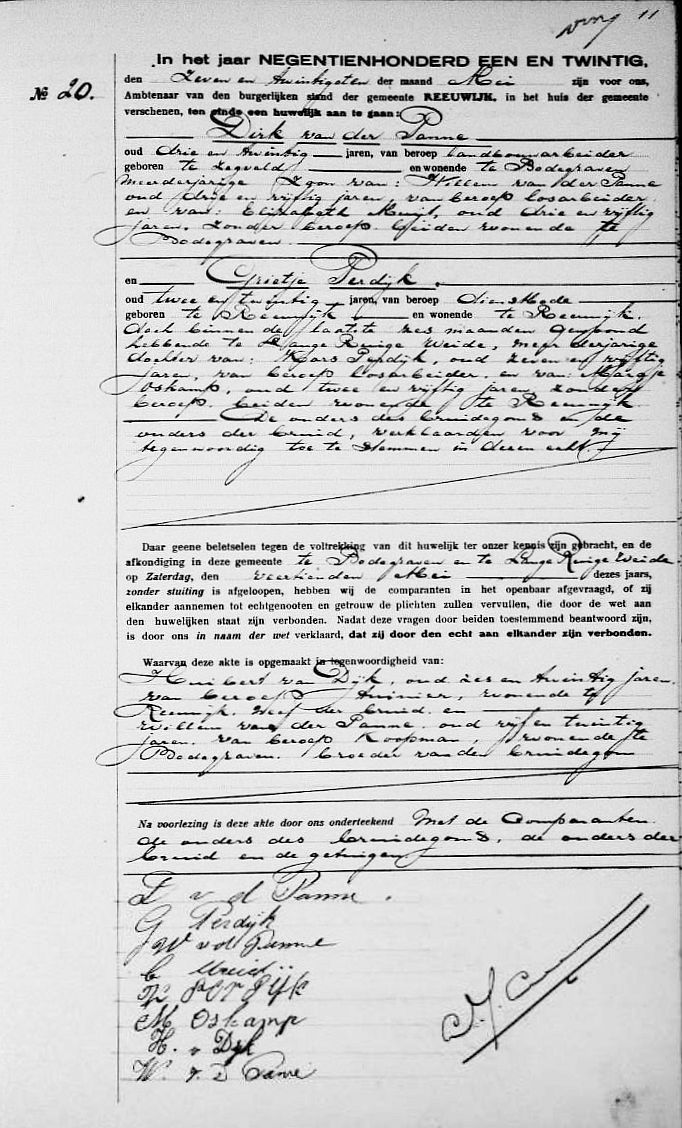 11
In het jaar NEGENTIENHONDERD EEN EN TWINTIG,
No 20.
den Zeven en twintigsten der maand Mei zijn voor ons,
Ambtenaar van den burgerlijken stand der gemeente REEUWIJK, in het huis der gemeente
verschenen, ten einde een huwelijk aan te gaan:
Dirk van der Panne
oud drie en twintig jaren, van beroep landbouwarbeider
geboren te Zegveld en wonende te Bodegraven
meerderjarige Zoon van: Willem van der Panne
oud drie en vijftig jaren, van beroep losarbeider
en van: Elizabeth Muijt, oud drie en vijftig
jaren, zonder beroep beiden wonende te
Bodegraven.
en Grietje Perdijk.
oud twee en twintig jaren, van beroep dienstbode
geboren te Reeuwijk en wonende te Reeuwijk.
doch binnen de laatste zes maanden gewoond
hebbende te Lange Ruige Weide, meerderjarige
dochter van: Kors Perdijk, oud zeven en vijftig
jaren, van beroep losarbeider, en van: Marrigje
Oskamp, oud twee en vijftig jaren, zonder
beroep. beiden wonende te Reeuwijk
De ouders des bruidegoms en de
ouders der bruid, verklaarden voor mij
tegenwoordig toe te stemmen in dezen echt.
Daar geene beletselen tegen de voltrekking van dit huwelijk ter onzer kennis zijn gebracht, en de
afkondiging in deze gemeente te Bodegraven en te Lange Ruige Weide
op Zaterdag, den veertienden Mei dezes jaars,
zonder stuiting is afgeloopen, hebben wij de comparanten in het openbaar afgevraagd, of zij
elkander aannemen tot echtgenooten en getrouw de plichten zullen vervullen, die door de wet aan
den huwelijken staat zijn verbonden. Nadat deze vragen door beiden toestemmend beantwoord zijn,
is door ons in naam der wet verklaard, dat zij door den echt aan elkander zijn verbonden.
Waarvan deze akte is opgemaakt in tegenwoordigheid van:
Huibert van Dijk, oud zes en twintig jaren.
van beroep tuinier, wonende te
Reeuwijk. Neef der bruid. en
Willem van der Panne. oud vijf en twintig
jaren. van beroep Koopman, wonende te
Bodegraven. broeder van den bruidegom
Na voorlezing is deze akte door ons onderteekend met de Comparanten.
de ouders des bruidegoms, de ouders der
bruid en de getuigen
D v d Panne.
G Perdijk
W v d Panne
K Perdijk
M Oskamp
H. v Dijk
W. v. D Panne